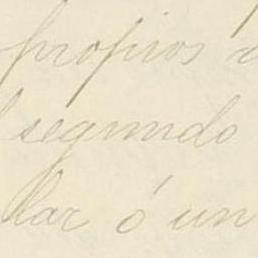 propios
segundo
lar ó un